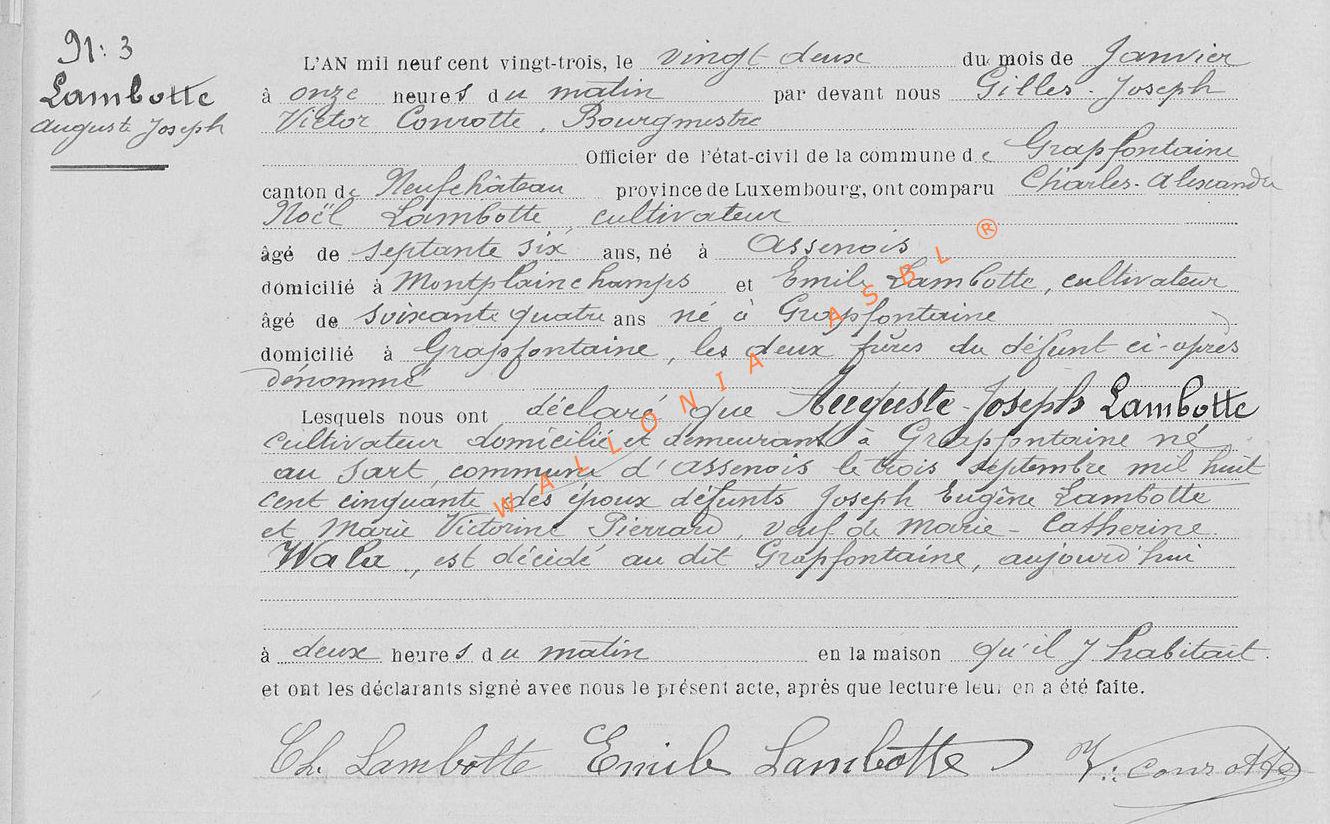 N: 3
Lambotte
Auguste Joseph
L'AN mil neuf cent vingt-trois, le vingt deux du mois de Janvier
à onze heures du matin par devant nous Gilles-Joseph
Victor Conrotte, Bourgmestre
Officier de l'état-civil de la commune de Grapfontaine
canton de Neufchâteau province de Luxembourg, ont comparu Charles-Alexandre
Noël Lambotte, cultivateur
âgé de septante six ans, né à Assenois
domicilié à Montplainchamps et Emile Lambotte, cultivateur
âgé de soixante quatre ans né à Grapfontaine
domicilié à Grapfontaine, les deux frères du défunt ci-après
dénommé
Lesquels nous ont déclaré que Auguste-Joseph Lambotte
cultivateur domicilié et demeurant à Grapfontaine né
au Sart, commune d'Assenois le trois septembre mil huit
cent cinquante des époux défunts Joseph Eugène Lambotte
et Marie Victorine Pierrard, veuf de Marie-Catherine
, est décédé au dit Grapfontaine, aujourd'hui
à deux heures du matin en la maison qu'il y habitait.
et ont les déclarants signé avec nous le présent acte, après que lecture leur en a été faite.
Ch. Lambotte Emile Lambotte V. Conrotte
WALLONIA ASBL ®